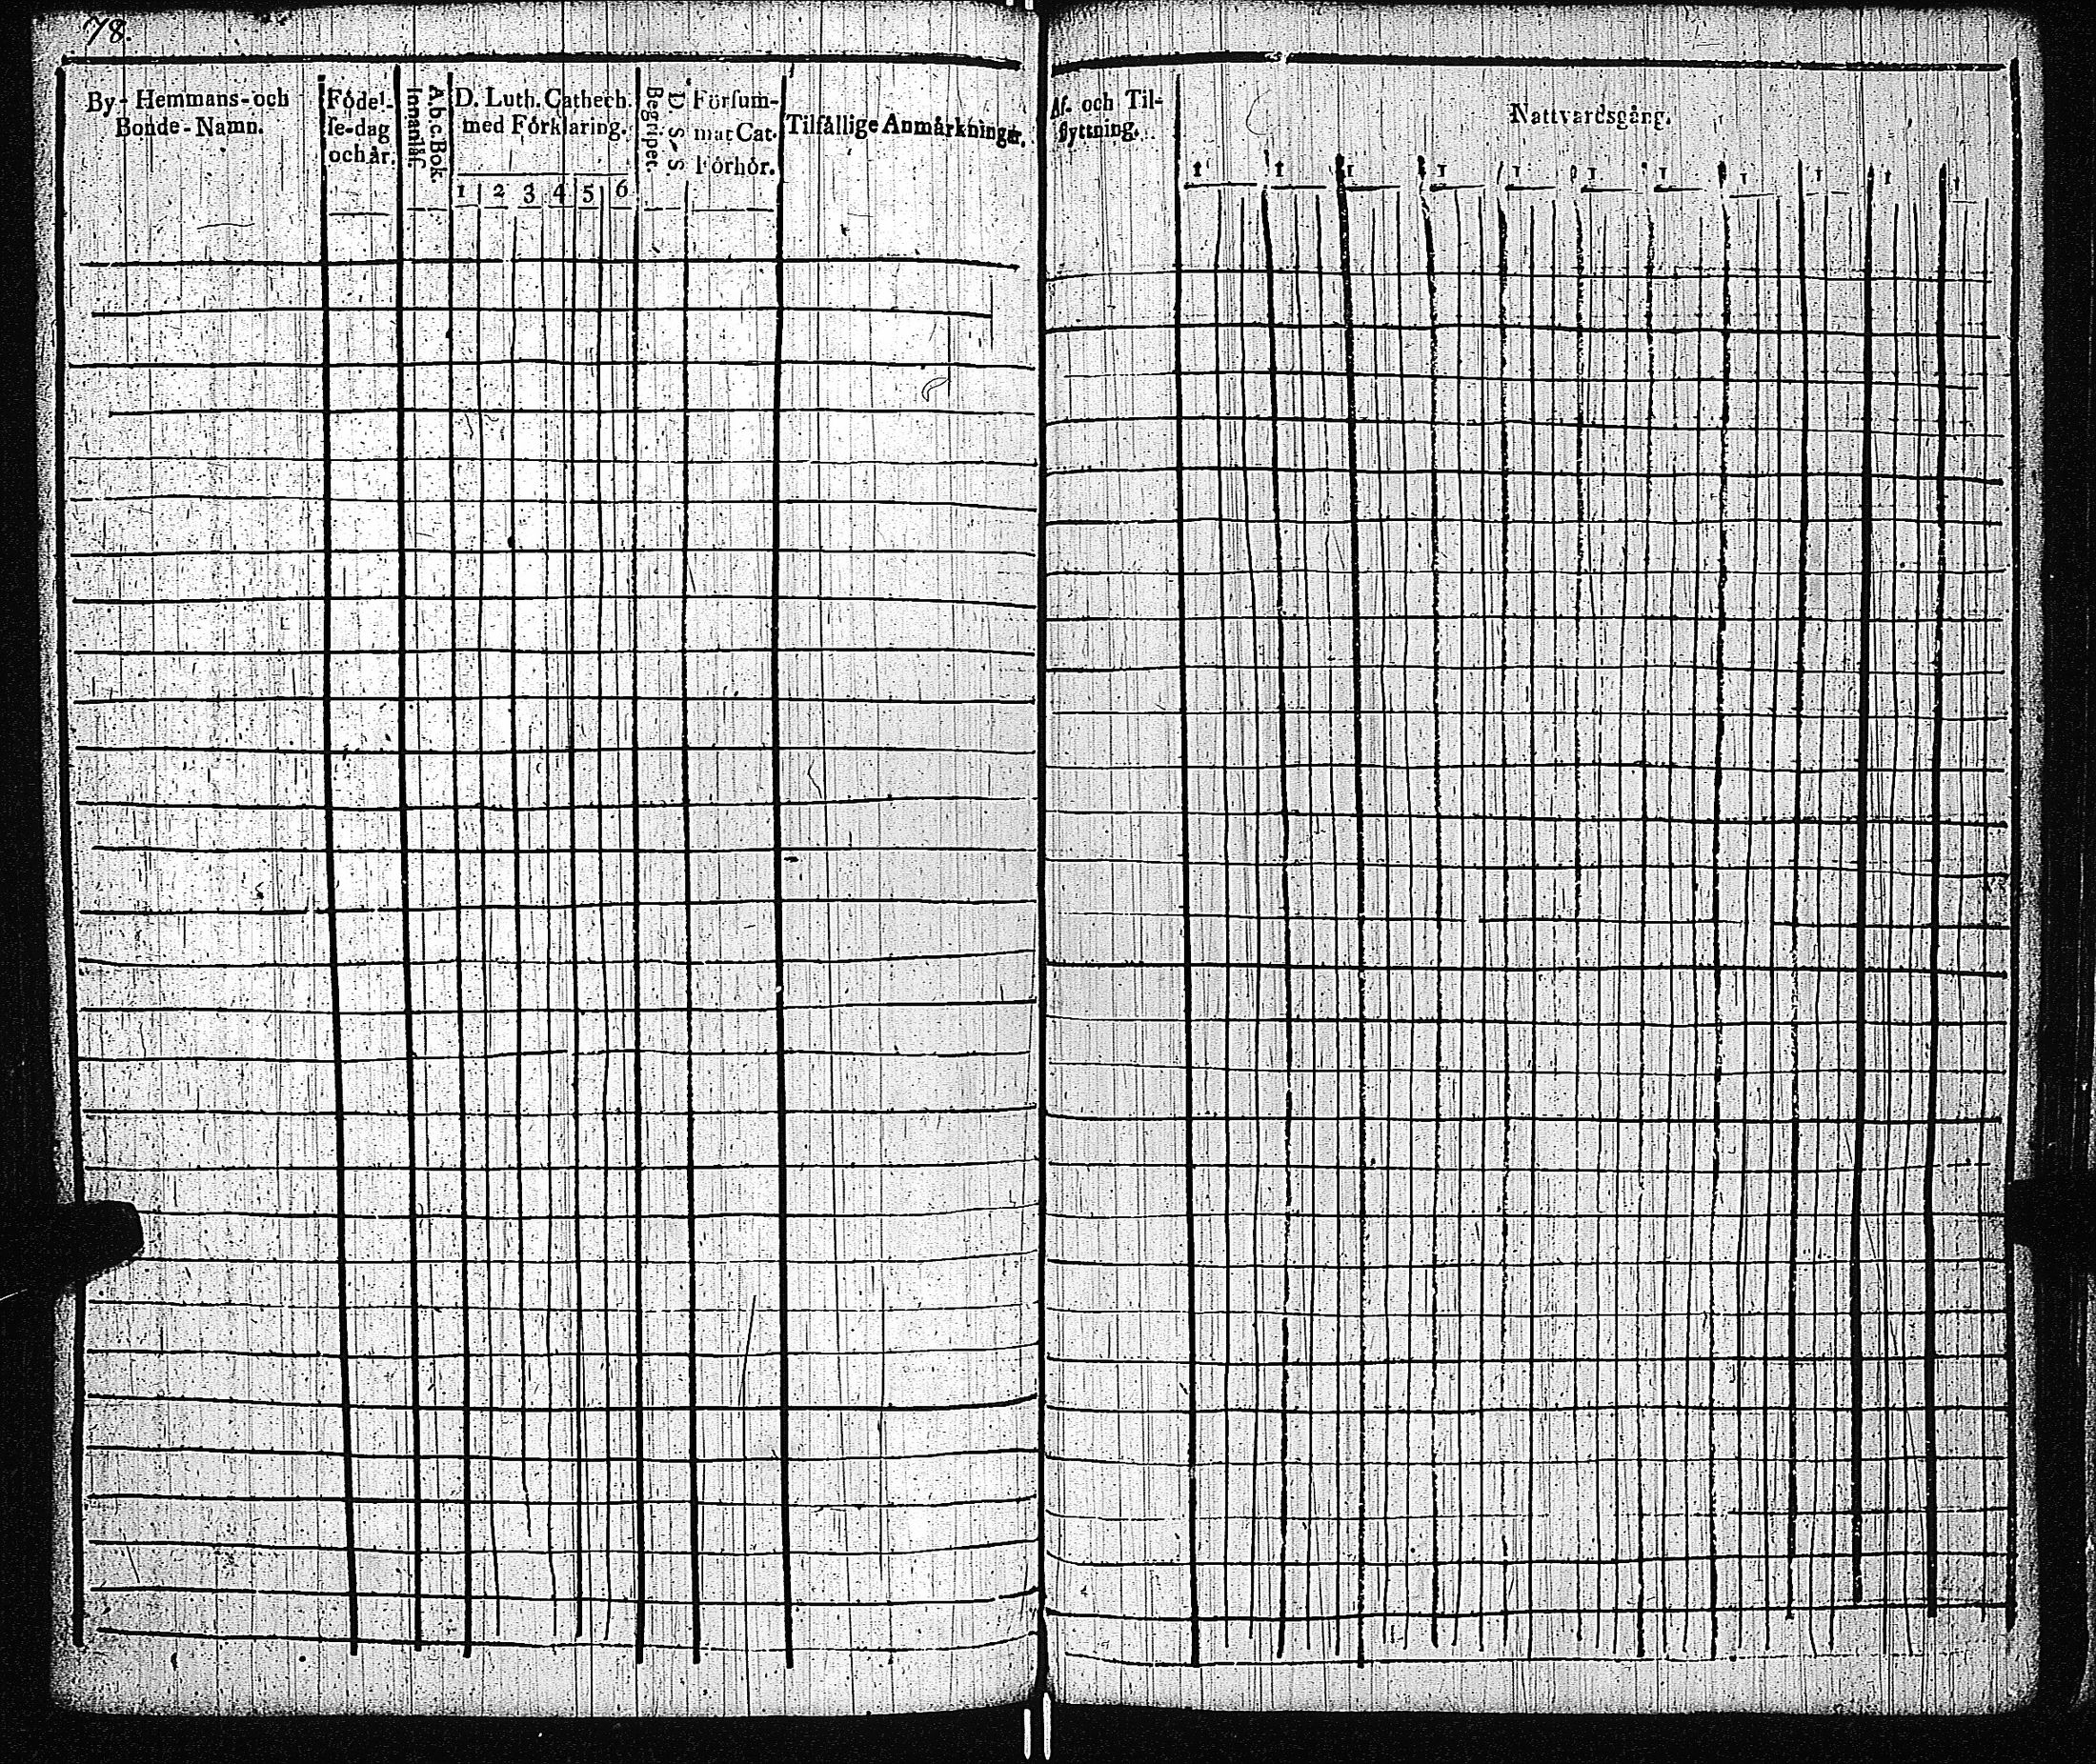 78.
By- Hemmans- och
Bonde-Namn.
Födel-
se-dag
och år.
A.b.c.Bok.
Innanläs.
D. Luth. Cathech.
med Förklaring.
1 2 3 4 5 6
D. S. S
Begripet.
Försum-
mat Cat.
Förhör.
Tilfällige Anmärkningar.
Af- och Til-
flyttning.
Nattvardsgång.
1 1 1 1 1 1 1 1 1 1 1